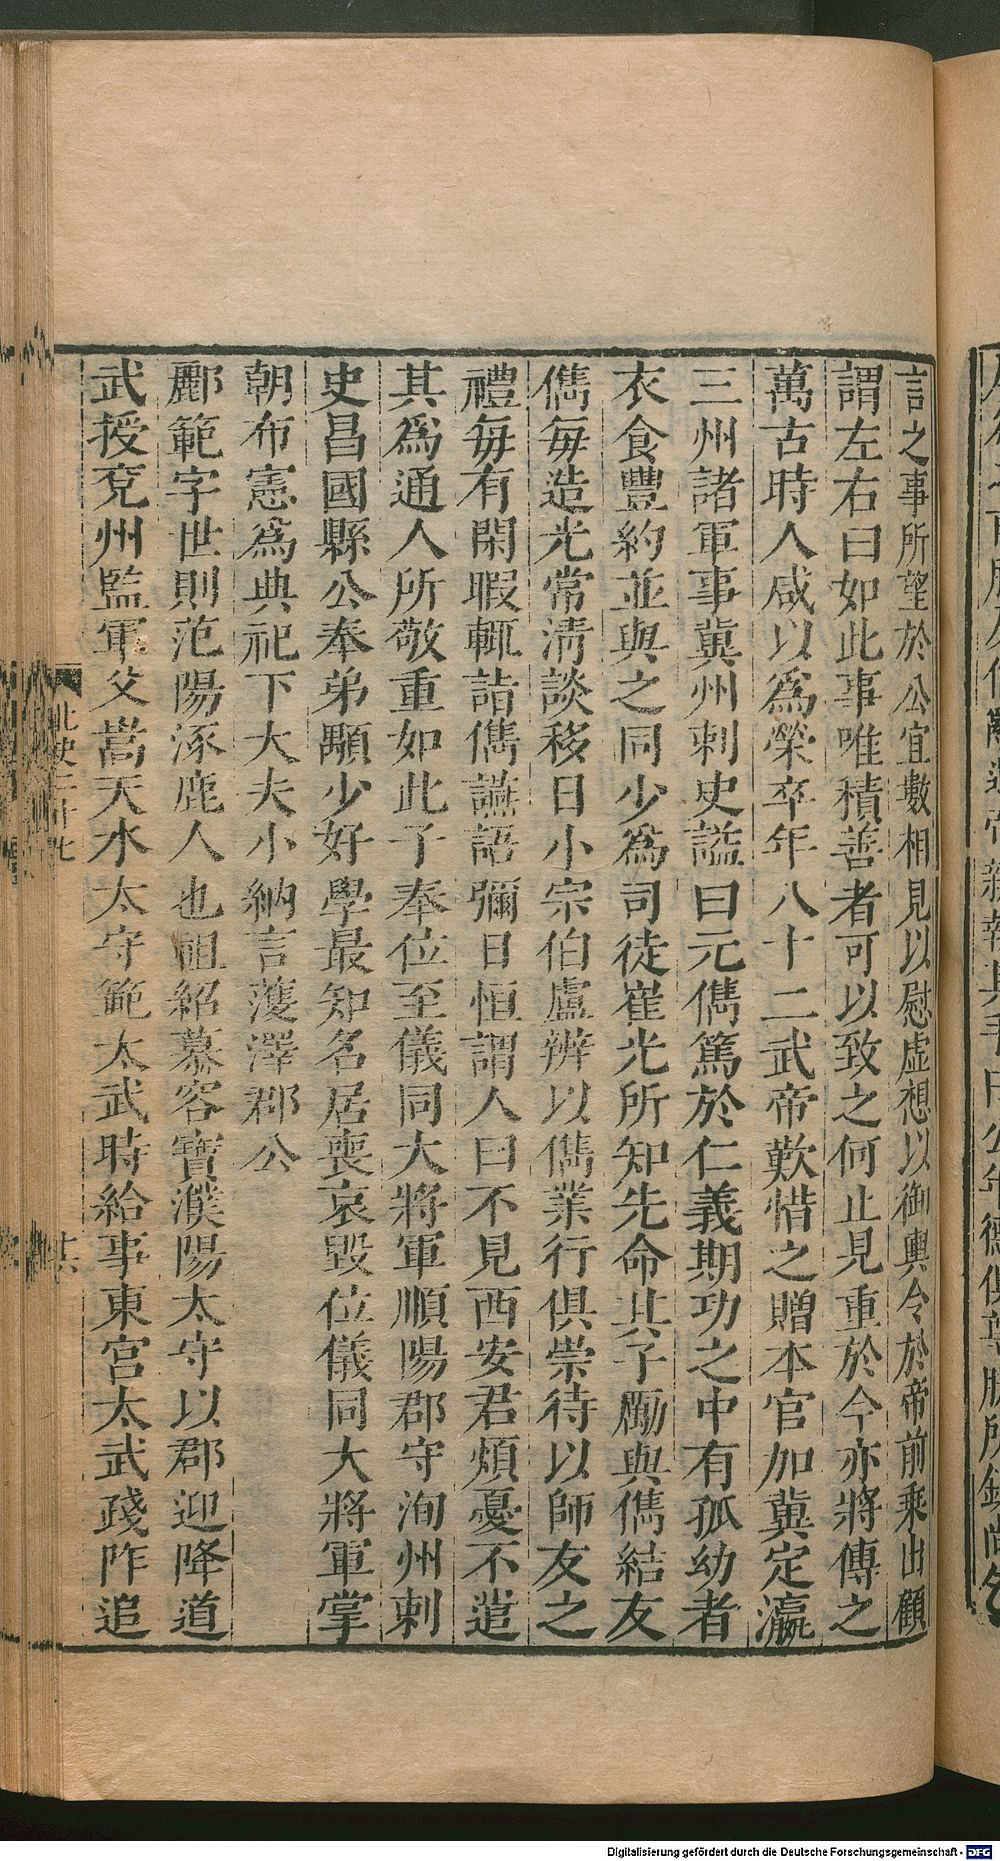 言之事所望於公宜數相見以慰虛想以御輿令於帝前乘出顧
謂左右曰如此事唯積善者可以致之何止見重於今亦將傳之
萬古時人咸以爲榮卒年八十二武帝歎惜之贈本官加冀定瀛
三州諸軍事冀州刺史諡曰元儁篤於仁義期功之中有孤幼者
衣食豐約並與之同少爲司徒崔光所知先命其子勵與儁結友
儁每造光常清談移日小宗伯盧辨以儁業行俱崇待以師友之
禮每有閑暇輒詣儁讌語彌日恒謂人曰不見西安君煩憂不遣
其爲通人所敬重如此子奉位至儀同大將軍順陽郡守洵州刺
史昌國縣公奉弟顯少好學最知名居喪哀毀位儀同大將軍掌
朝布憲爲典祀下大夫小納言蒦澤郡公
酈範字世則范陽涿鹿人也祖紹慕容寶濮陽太守以郡迎降道
武授兗州監軍父嵩天水太守範太武時給事東宮太武踐阼追
北史二十七
廿六
Digitalisierung gefördert durch die Deutsche Forschungsgemeinschaft - DFG